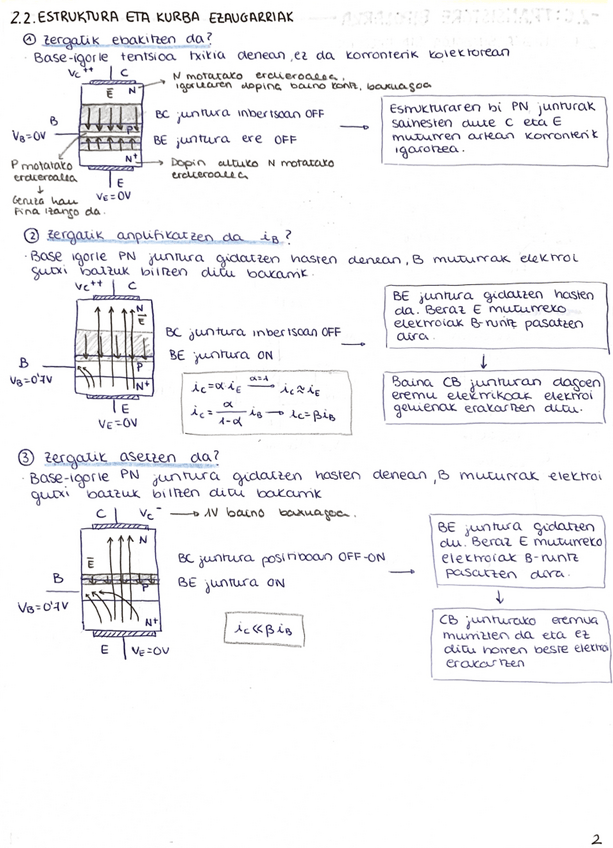 2.2. ESTRUKTURA ETA KURBA EZAUGARRIAK
① Zergatik ebakitzen da?
· Base-igorle tentsioa txikia denean, ez da korronterik kolektorean
Vc++ C
N motatako erdieroalea,
igorlearen doping baino kontz. baxuagoa
E N
BC juntura inbertsoan OFF
B
P
VB=0V
BE juntura ere OFF
Estrukturaren bi PN junturak
saihesten dute C eta E
muturren artean korronterik
igarotzea.
P motatako
erdieroalea
N+
Dopin altuko N motatako
erdieroalea
E
VE=0V
Geruza hau
fina izango da.
② Zergatik anplifikatzen da iB?
· Base igorle PN juntura gidatzen hasten denean, B muturrak elektroi
gutxi batzuk biltzen ditu bakarrik.
Vc++ C
N
E
BC juntura inbertsoan OFF
BE juntura ON
B
P
VB=0'7V
N+
E
VE=0V
ic=α·iE α=1 → ic≈iE
ic= α/1-α iB → ic=βiB
BE juntura gidatzen hasten
da. Beraz E muturreko
elektroiak B-runtz pasatzen
dira.
Baina CB junturan dagoen
eremu elektrikoak elektroi
gehienak erakartzen ditu.
③ Zergatik asetzen da?
· Base-igorle PN juntura gidatzen hasten denean, B muturrak elektroi
gutxi batzuk biltzen ditu bakarrik
C Vc- → 1V baino baxuagoa.
N
E
BC juntura positiboan OFF-ON
B
P
BE juntura ON
VB=0'7V
N+
E VE=0V
ic≪βiB
BE juntura gidatzen
du. Beraz E muturreko
elektroiak B-runtz
pasatzen dira.
CB junturako eremua
murrizten da eta ez
ditu horren beste elektroi
erakartzen
2